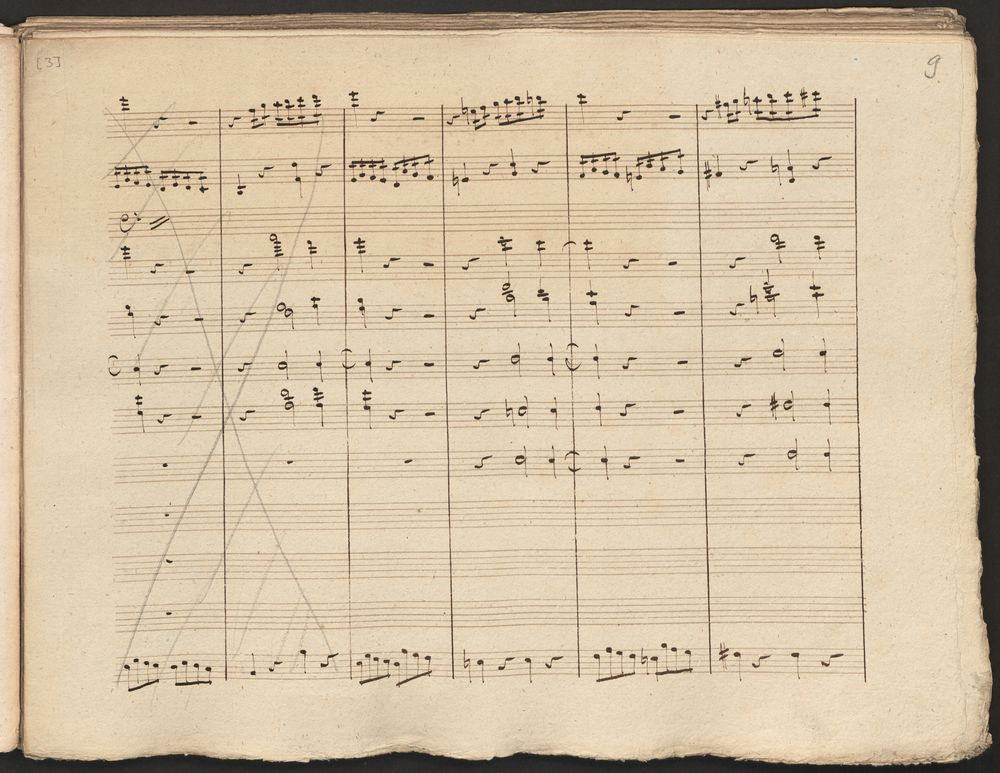 [3]
9